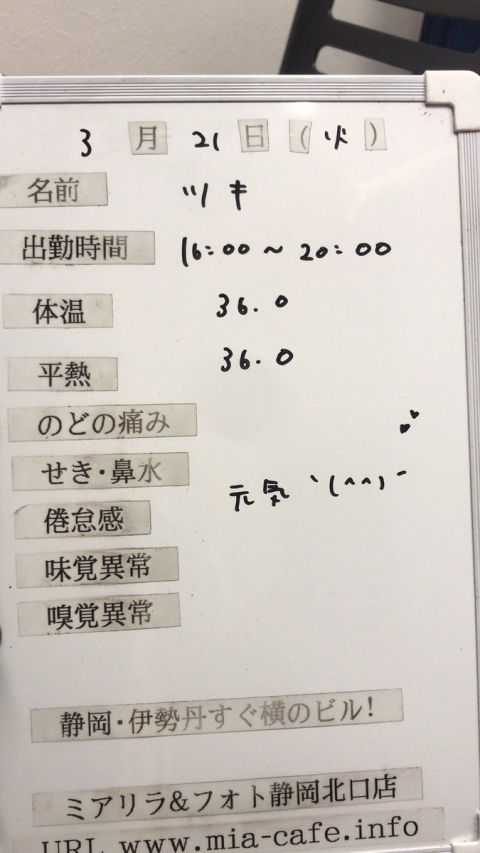 3 月 21 日 (火)
名前 ツキ
出勤時間 16:00 ~ 20:00
体温 36.0
平熱 36.0
のどの痛み
せき・鼻水
元気 `(^^)´
倦怠感
味覚異常
嗅覚異常
静岡・伊勢丹すぐ横のビル!
ミアリラ&フォト静岡北口店
URL www.mia-cafe.info